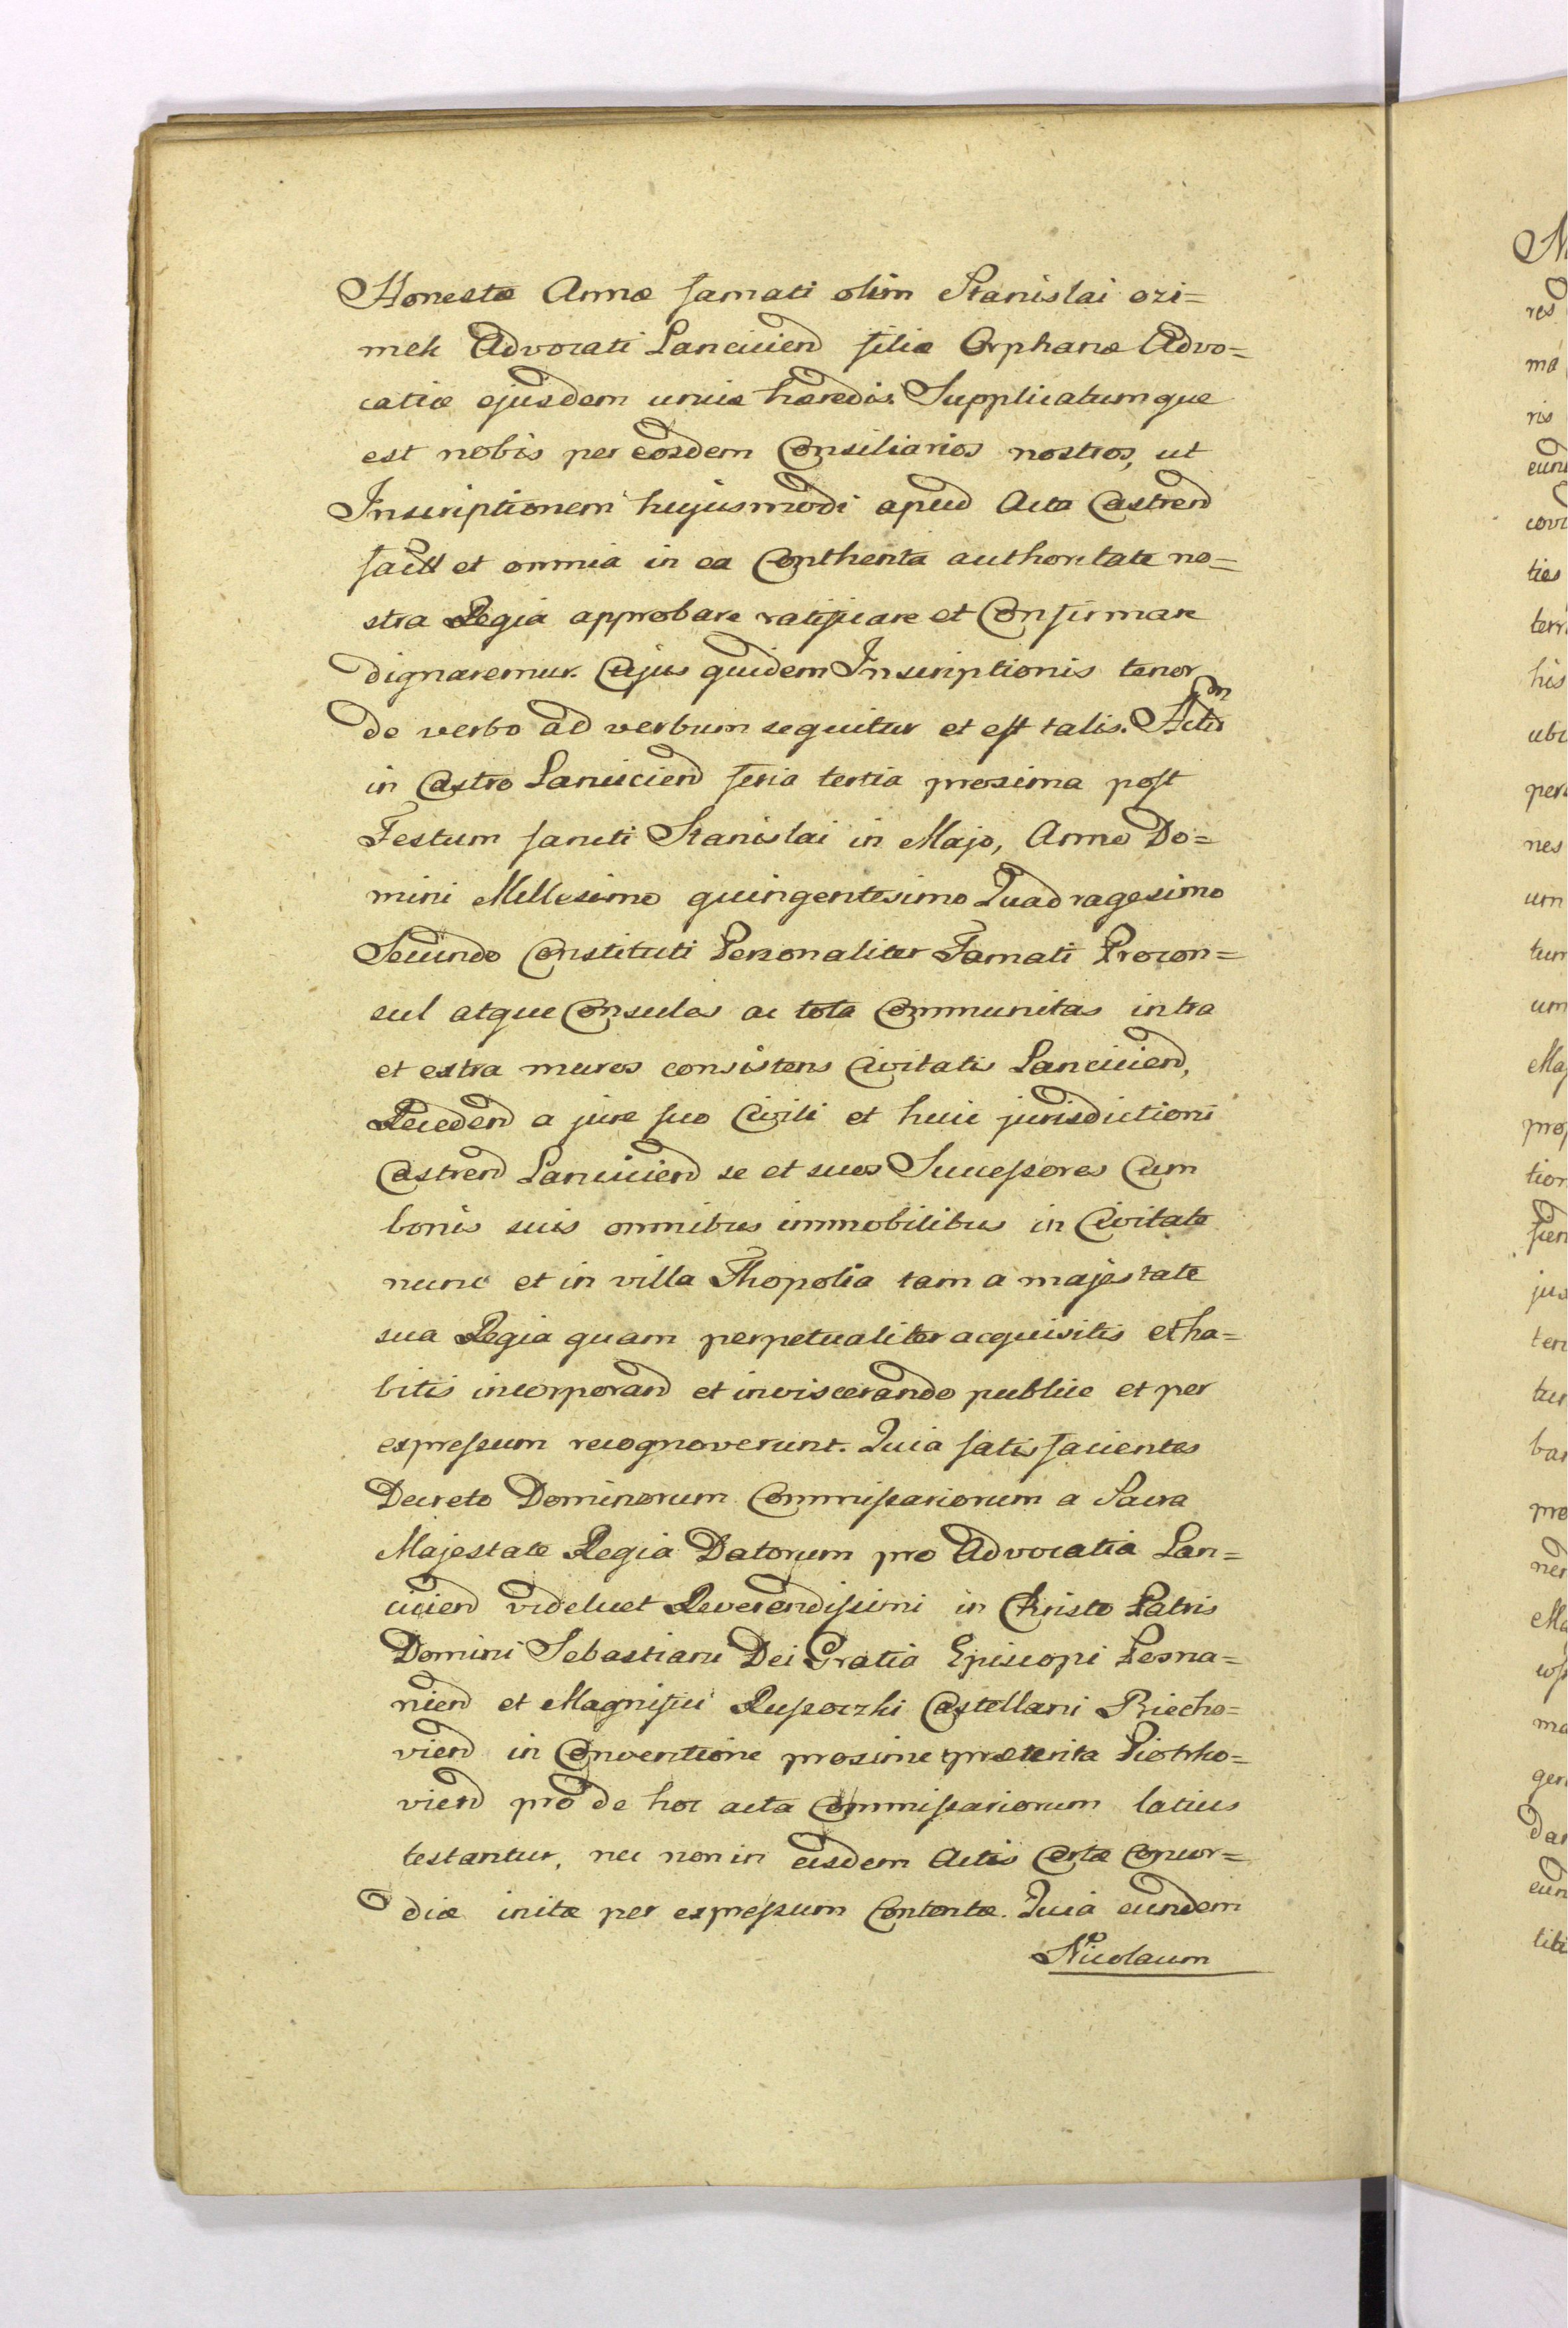 Honestæ Annæ famati olim Stanislai ozi=
mek Advocati Lanciciend filiæ Orphanæ Advo=
catiæ ejusdem unicæ hæredis. Supplicatumque
est nobis per eosdem Consiliarios nostros, ut
Inscriptionem hujusmodi apud Acta Castrend
fact et omnia in ea Conthenta authoritate no=
stra Regia approbare ratificare et Confirmare
dignaremur. Cujus quidem Inscriptionis tenor
de verbo ad verbum sequitur et est talis. Actum
in Castro Lanciciend feria tertia proxima post
Festum sancti Stanislai in Majo, Anno Do=
mini Millesimo quingentesimo Quadragesimo
Secundo Constituti Personaliter Famati Procon=
sul atque Consules ac tota Communitas intra
et extra muros consistens Civitatis Lanciciend,
Recedend a jure suo Civili et huic jurisdictioni
Castrend Lanciciend se et suos Successores Cum
bonis suis omnibus immobilibus in Civitate
nunc et in villa Thopolia tam a majestate
sua Regia quam perpetualiter acquisitis et ha=
bitis incorporand et inviscerando publice et per
expressum recognoverunt. Quia satisfacientes
Decreto Dominorum Commissariorum a Sacra
Majestate Regia Datorum pro Advocatia Lan=
ciciend videlicet Reverendissimi in Christo Patris
Domini Sebastiani Dei Gratia Episcopi Posna=
niend et Magnifici Rusoczki Castellani Biecho=
viend in Conventione proxime præterita Piotrko=
viend pro de hoc acta Commissariorum latius
testantur, nec non in eisdem Actis Certæ Concor=
diæ initæ per expressum Contentæ. Quia eundem
Nicolaum